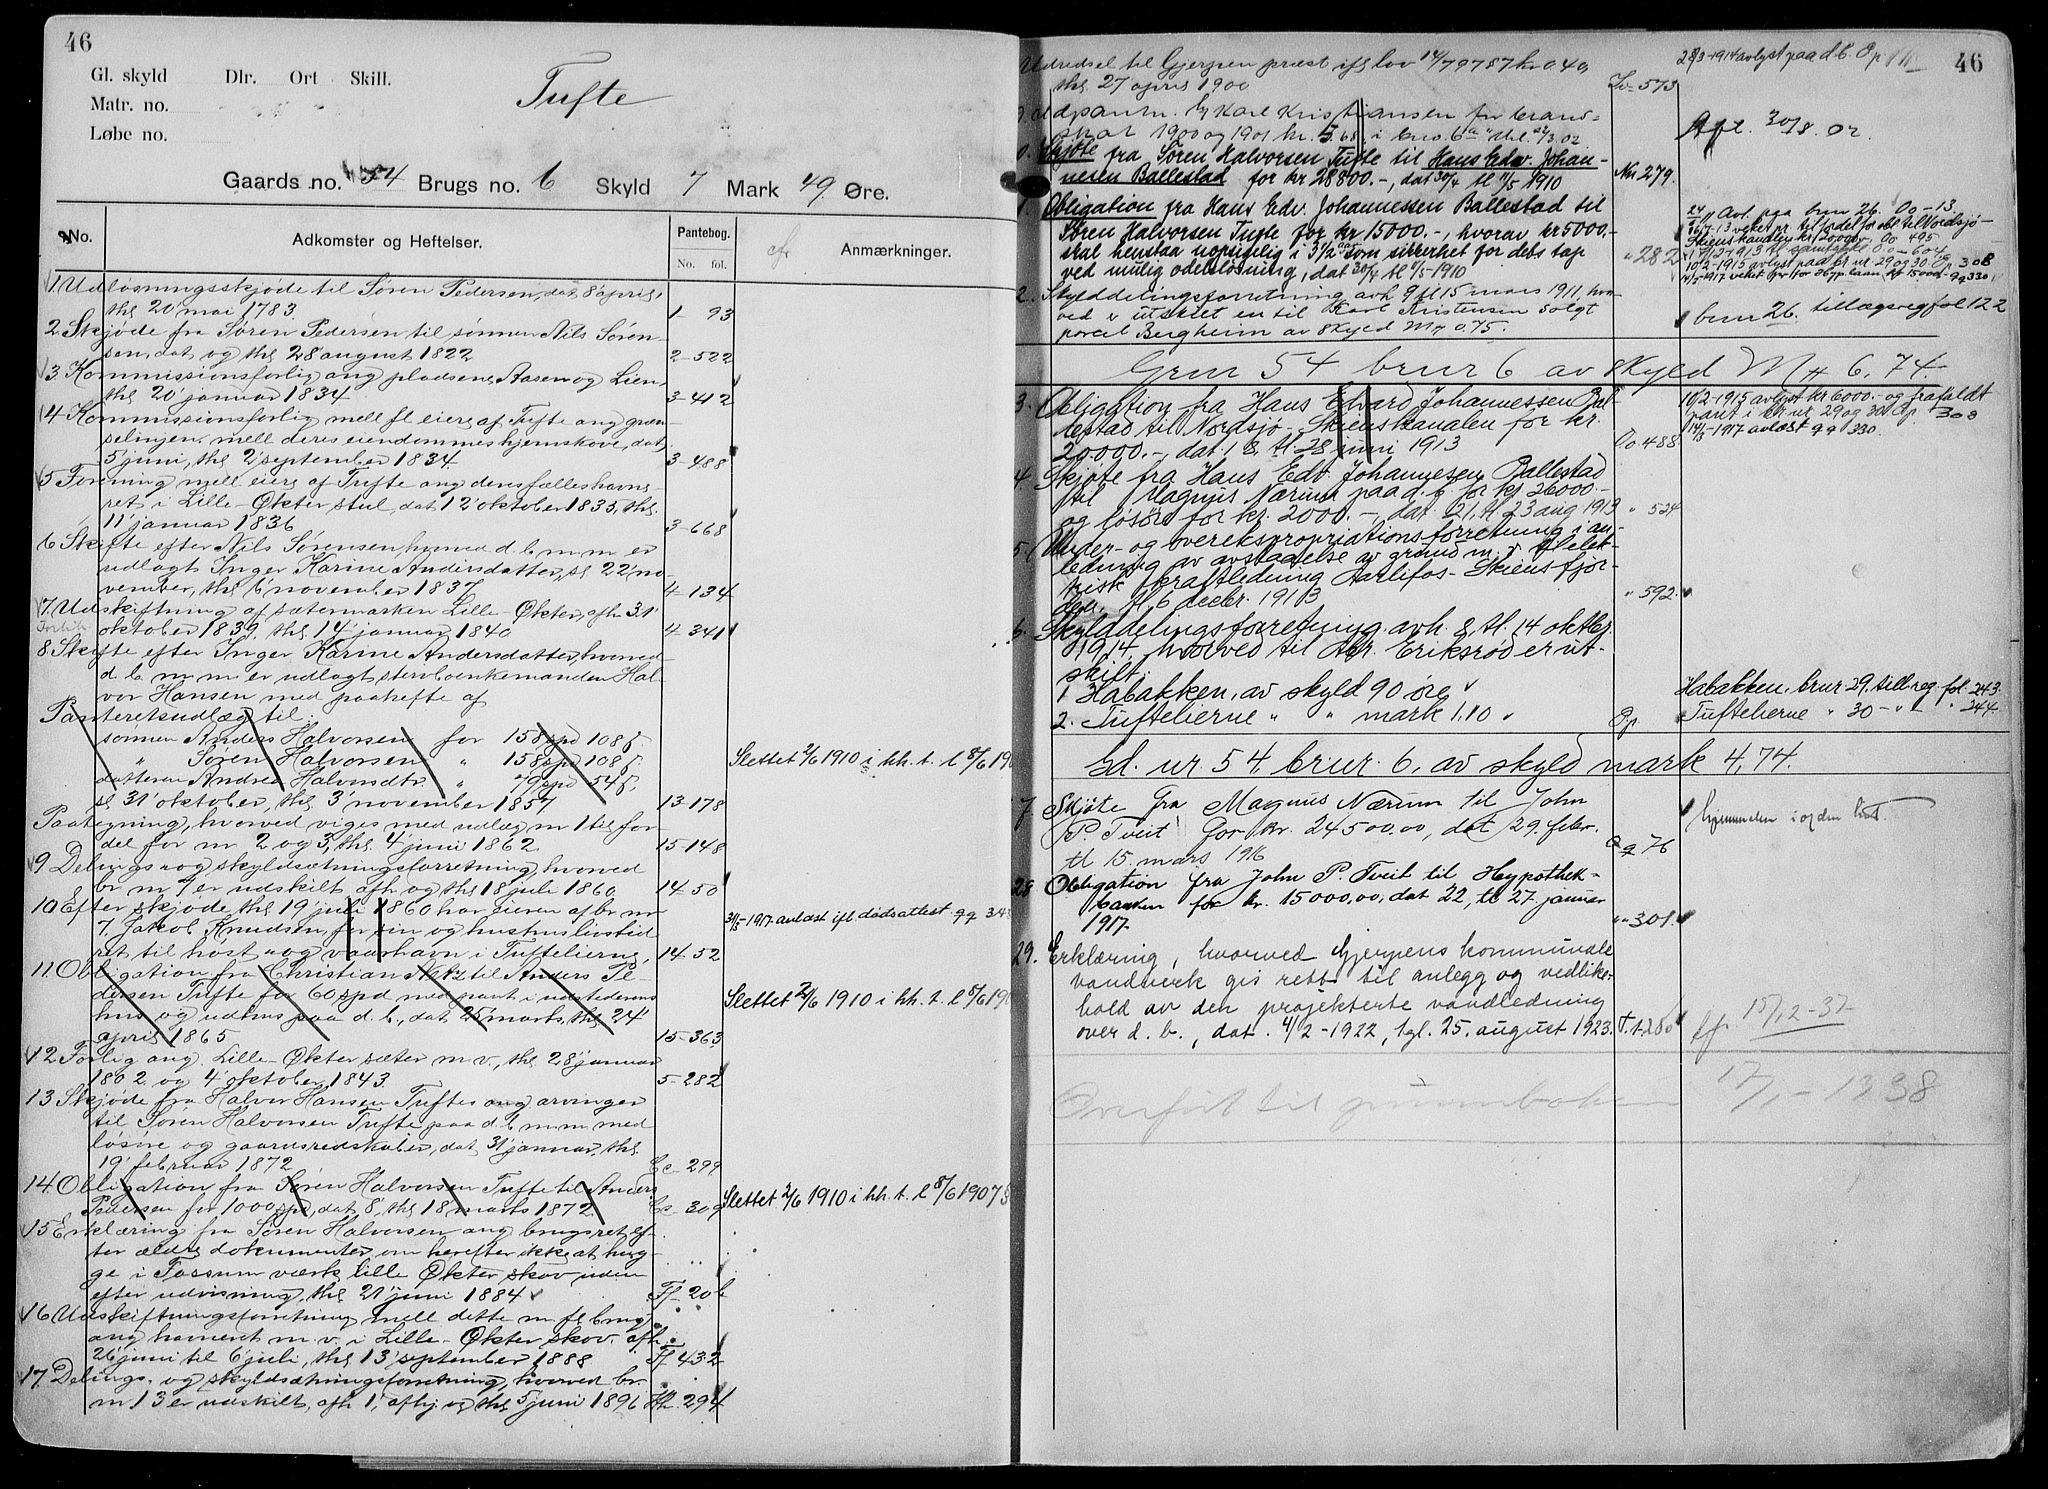 46
Gl. skyld Dlr. Ort Skill.
Matr. no.
Løbe no.
Tufte
Gaards no. 54 Brugs no. 6 Skyld 7 Mark 49 Øre.
No. Adkomster og Heftelser. Pantebog. No. fol. cfr Anmærkninger.
1 Udløsningsskjøde til Søren Pedersen, dat 8' april,
thl 20' mai 1783. 1- 93
2 Skjøde fra Søren Pedersen til sønnen Nils Søren-
sen, dat og thl 28' august 1822 2-522
3 Kommissionsforlig ang pladsene Aasen og Lien,
thl 20' januar 1834. 3-412
4 Kommissionsforlig mell fl eiere af Tufte ang græn-
selinjen mell deres eiendommes hjemskove, dat
5' juni, thl 2' september 1834 3-488
5 Forening mell eiere af Tufte ang deres fælleshavne-
ret i Lille-Økter stul, dat 12' oktober 1835, thl
11' januar 1836 3-668
6 Skifte efter Nils Sørensen, hvorved d. b. m m er
udlagt Inger Karine Andersdatter, sl 22' no-
vember, thl 6' november 1837 4-134
7 Udskiftning af sætermarken Lille-Økter, afh 31'
oktober 1839, thl 14' januar 1840 4-341
8 Skifte efter Inger Karine Andersdatter, hvorved
d. b. m m er udlagt sterboenkemanden Hal-
vor Hansen med paahefte af
Panteretsudlæg til
sønnen Anders Halvorsen for 158 spd 108 ß.
" Søren Halvorsen " 158 spd 108 ß. Slettet 2/6 1910 i hh. t. l 8/6 190
datteren Andrea Halvorsdtr. " 79 spd 54 ß,
sl 31' oktober, thl 3' november 1857 13-178
Paategning, hvorved viges med udlæg nr 1 til for-
del for nr 2 og 3, thl 4' juni 1862. 15-148
9 Delings- og skyldsætningsforretning, hvorved
br nr 7 er udskilt afh og thl 18 juli 1860, 14 50
10 Efter skjøde thl 19' juli 1860 har eieren af br nr
7, Jakob Knudsen, for sin og hustrus livstid
ret til høst- og vaarhavn i Tuftelierne, 14 52
11 Obligation fra Christian til Anders Pe-
dersen Tufte for 60 spd med pant i udstederens
hus og udhus paa d. b., dat 25' marts, thl 24' Slettet 2/6 1910 i hh. t. l 8/6 190
april 1865 15-363
12 Forlig ang Lille-Økter sæter m. v., thl 28' januar
1802 og 4' oktober 1843. 5-282
13 Skjøde fra Halvor Hansen Tuftes arvinger
til Søren Halvorsen Tufte paa d. b. m m med
løsøre og gaardsredskaber, dat 31' januar, thl
19' februar 1872 Cc-299
14. Obligation fra Søren Halvorsen Tufte til Anders
Pedersen for 1000 spd, dat 8', thl 18' marts 1872. Cc-309 Slettet 2/6 1910 i hh. t. l 8/6 1907
15 Erklæring fra Søren Halvorsen ang brugsret ef-
ter ældre dokumenter, om herefter ikke at hug-
ge i Fossum værks lille Økter skov uden
efter udvisning, thl 21' juni 1884 Ff- 20
16 Udskiftningsforretning mell dette m fl brug
ang havneret m. v. i Lille-Økter skov, afh
26' juni til 6' juli, thl 13' september 1888 Ff 432
17. Delings- og skyldsætningsforretning, hvorved br.
nr. 13 er udskilt, afh 1', afhj og thl 5' juni 1896 294
46
Udredsel til Gjerpen præst ifl lov 14/7 9787 kr 0.40,
thl 27 april 1900 573
28/3-1914 avlyst paa d. b. Op
Karl Kristiansen for brand-
1900 og 1901 kr. 5.68
Afl. 30/8. 02
Skjøte fra Søren Halvorsen Tufte til Hans Edv. Johan-
nesen Ballestad for kr 28800.-, dat 30/4 tl 11/5 1910 Nn 279.
1. Obligation fra Hans Edv. Johannessen Ballestad til
Søren Halvorsen Tufte for kr 15000.-, hvorav kr 5000.-
skal henstaa uopsigelig i 3 1/2 aar som sikkerhet for dets tap
ved mulig odelsløsning, dat 30/4 tl 11/5-1910 " 282
2. Skylddelingsforretning avh. 9 tl 15 mars 1911, hvor-
ved er utskilt en til Karl Kristensen solgt
parcel Bergheim av skyld Mk 0.75.
brnr 26. tillægsreg fol 122
Grnr 54 brnr 6 av skyld Mk 6,74.
3. Obligation fra Hans Edvard Johannessen Bal-
lestad til Nordsjø-Skienskanalen for kr.
20000.-, dat 18, tl. 28 juni 1913 Oo 488
10/2-1915 avlyst kr 6000.- og frafaldt
pant i br nr 29 og 30 Op 308
14/5-1917 avlæst qq 330
4. Skjøte fra Hans Edv. Johannesen Ballestad
til Magnus Nærum paa d. b. for kr 26000.-
og løsøre for kr. 2000.-, dat. 21, tl 23 aug 1913 " 524
5. Under- og overekspropriationsforretning i an-
ledning av avstaaelse av grund m. v. til elek-
trisk kraftledning Aarlifos-Skiensfjor-
den. tl. 6 decbr. 1913 " 592.
6. Skylddelingsforretning avh. 8, tl. 14 oktbr.
1914, hvorved til Abr. Eriksrød er ut-
skilt:
1 Habakken, av skyld 90 øre Habakken, brnr 29, till.reg. fol 243.
2. Tuftelierne " " mark 1.10 Op Tuftelierne " 30 - " - " 244
Gd. nr. 54, brnr. 6, av skyld mark 4,74.
7 Skjøte fra Magnus Nærum til John
P. Tveit for kr. 24500.00, dat 29. febr.
tl 15. mars 1916 Qq 76
28 Obligation fra John P. Tveit til Hypothek-
banken for kr. 15000,00, dat 22, tl 27. januar
1917. " 301.
29. Erklæring, hvorved Gjerpens kommunale
vandverk gis rett til anlegg og vedlike-
hold av den projekterte vandledning
over d. b., dat. 4/2-1922, tgl. 25. august 1923. T. 1-280
15/12-37
Overført til grunnboken 17/1-1938